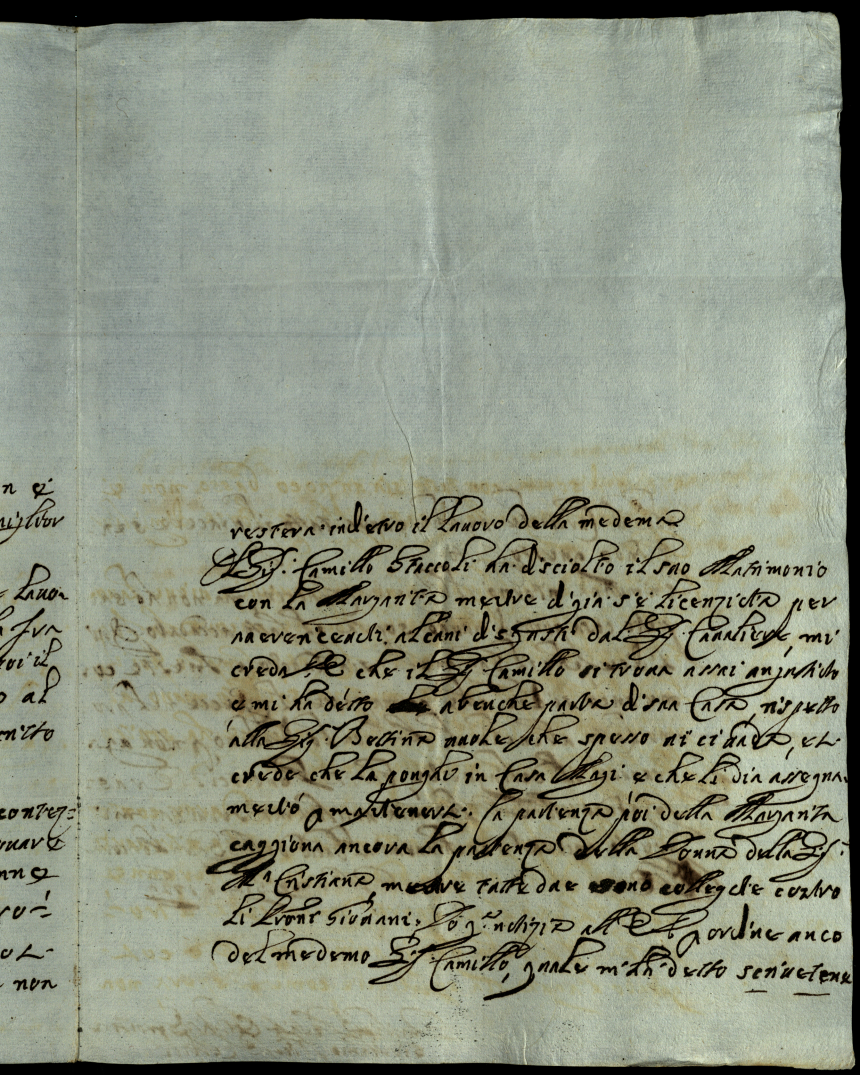 n e
miglior
e Lavo-
la fra
poi il
o al
non
restera indietro il lavoro della medema
Il Sig.r Camillo Staccoli ha disciolto il suo Matrimonio
con la Margarita mentre di gia s'è licenziata per
haver ricevuti alcuni disgusti dal Sig.r Cavaliere, mi
creda che il Sig.r Camillo si trova assai angustiato
e mi ha detto a benche parta di sua Casa, rispetto
alla Sig.ra Bettina vuole che spesso vi ci vada, et
crede che la ponghi in Casa Magi e che li dia assegna
mento p mantenersi. La partenza poi della Margarita
caggiona ancora la partenza della Donna della Sig.ra
M.a Cristiana, mentre tutte due sono collegate contro
li Giovani. Do q.a notizia all' p ordine anco
del medemo Sig.r Camillo, quale mi ha detto